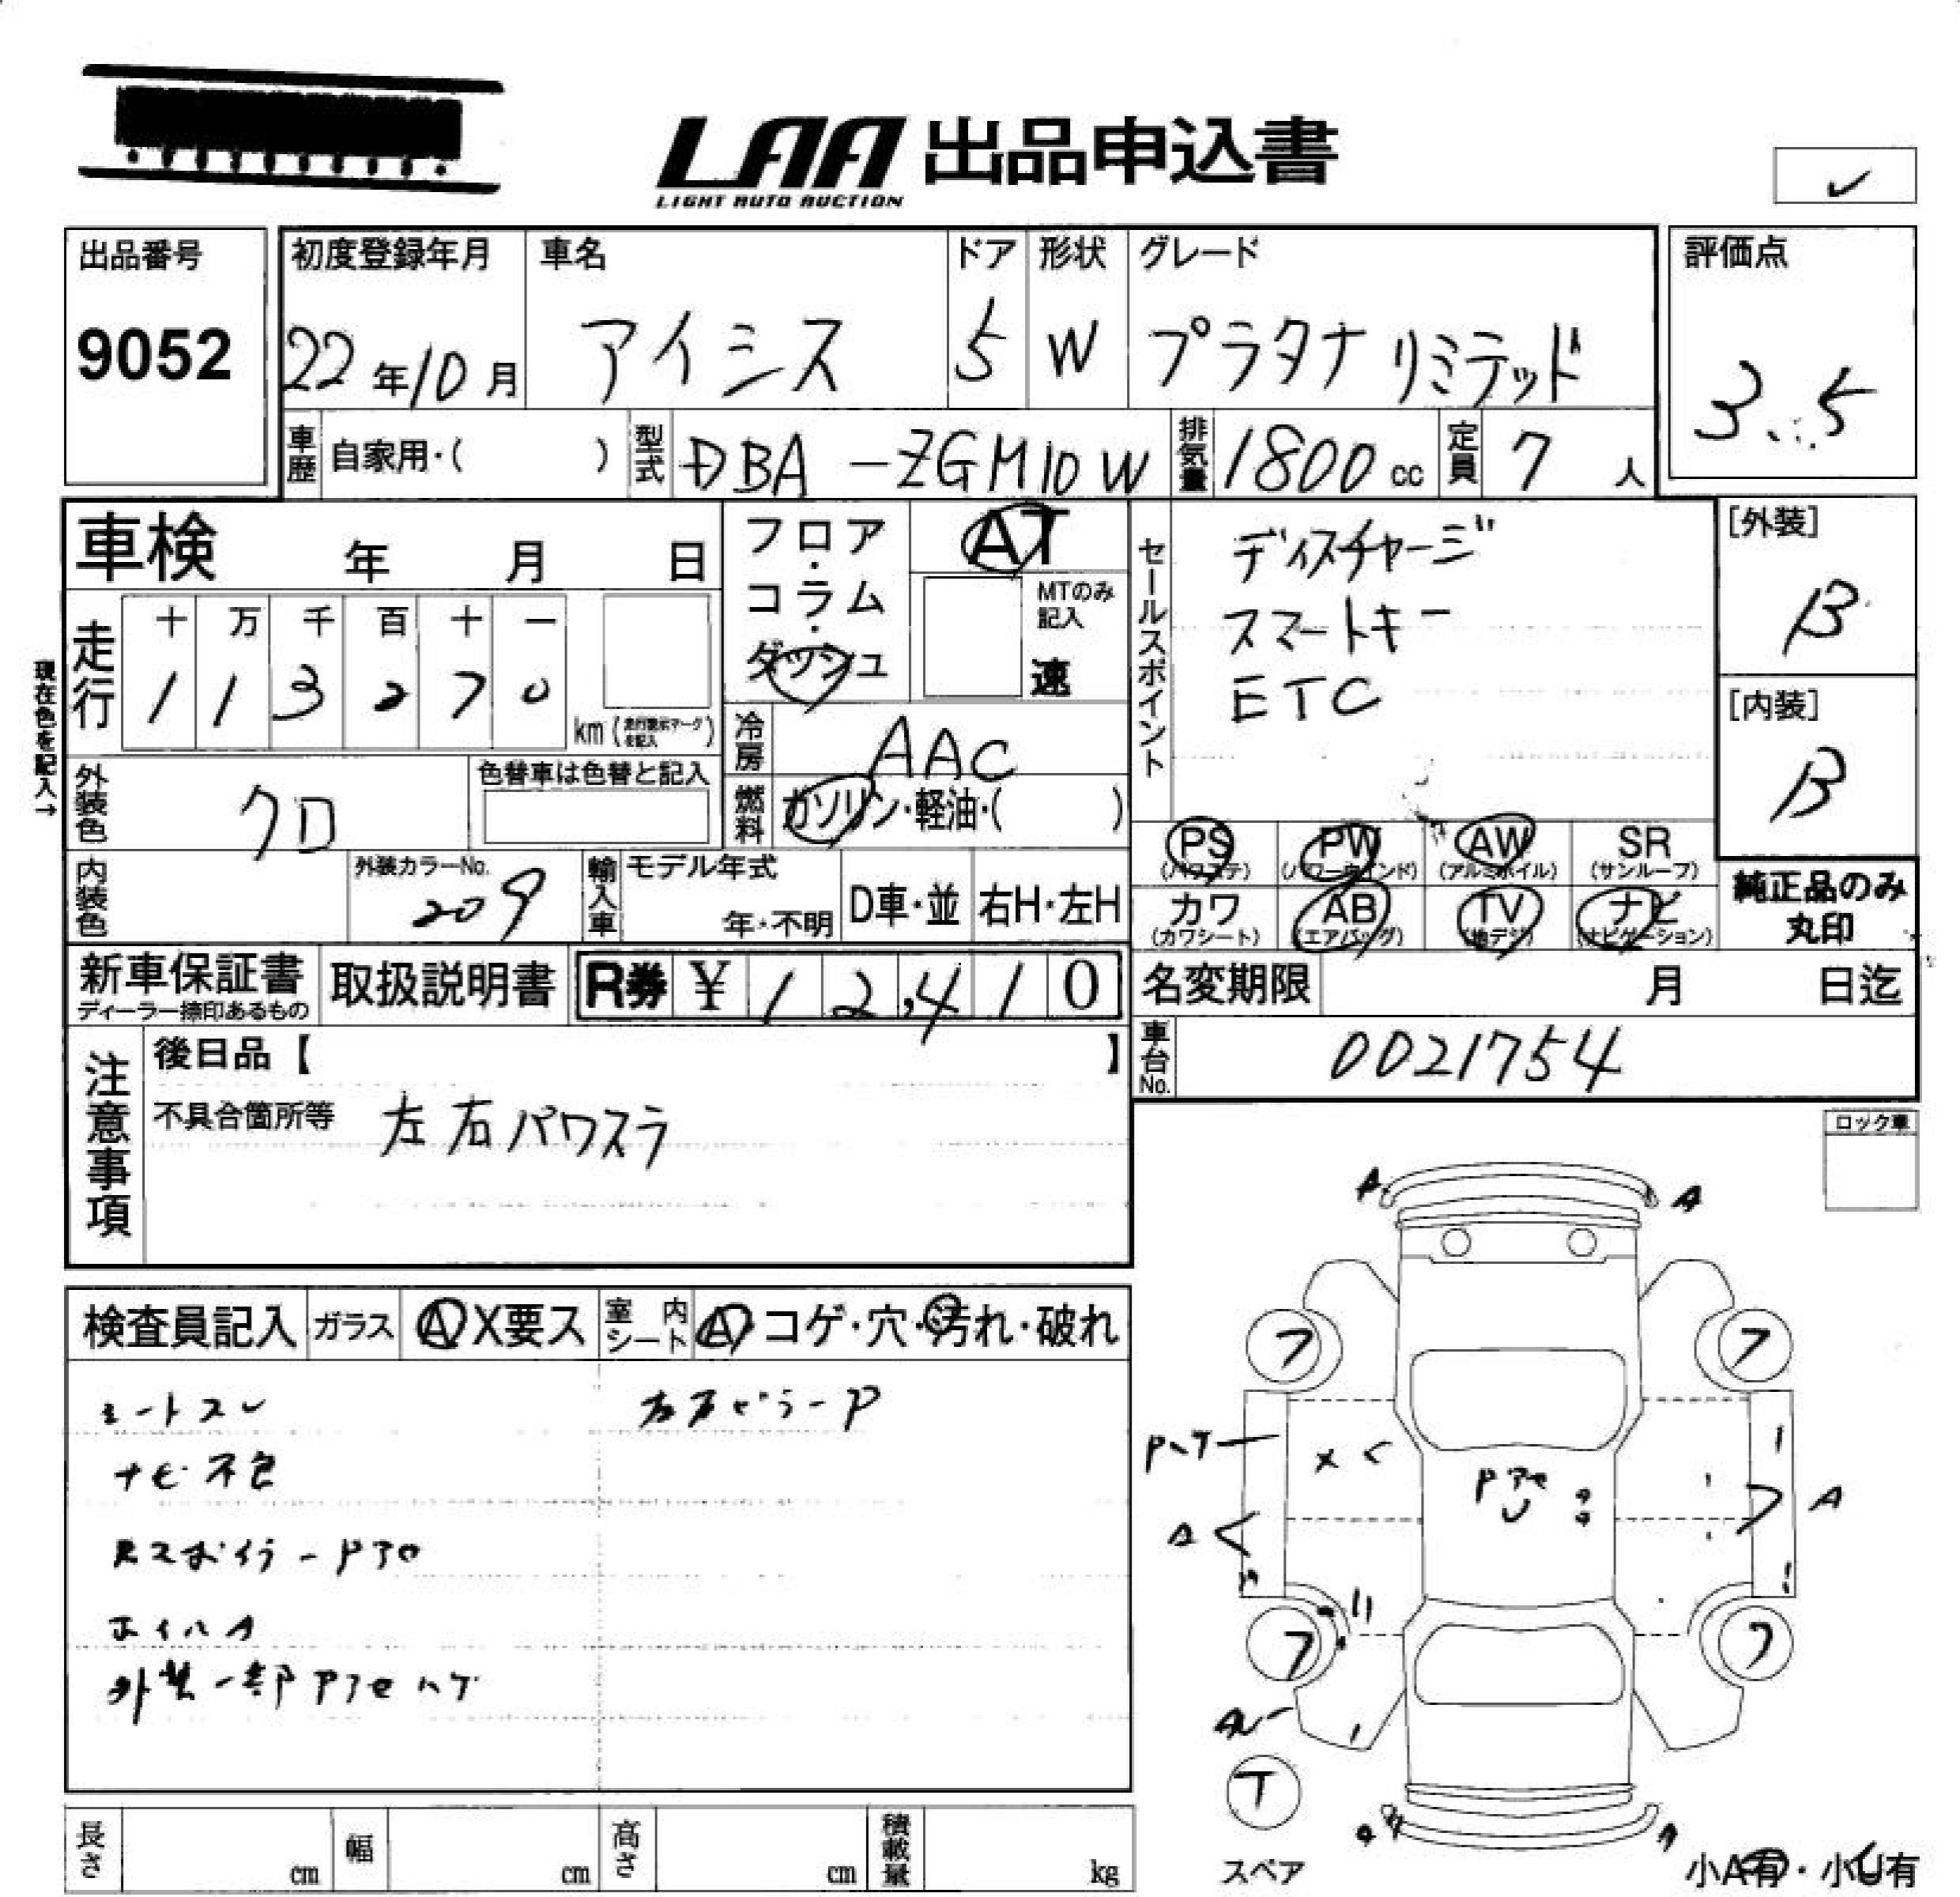 LAA 出品申込書
LIGHT AUTO AUCTION
✓
出品番号 初度登録年月 車名 ドア 形状 グレード 評価点
9052 22年10月 アイシス 5 W プラタナ リミテッド 3.5
車歴 自家用・( ) 型式 DBA-ZGM10W 排気量 1800cc 定員 7人
車検 年 月 日
フロア・コラム・ダッシュ AT
MTのみ記入 速
セールスポイント
ディスチャージ
スマートキー
ETC
[外装]
B
[内装]
B
現在色を記入→
走行 十 万 千 百 十 一
1 1 3 2 7 0 km (走行表示マークを記入)
冷房 AAC
外装色 クロ 色替車は色替と記入
燃料 ガソリン・軽油・( )
PS (パワステ) PW (パワーウインド) AW (アルミホイル) SR (サンルーフ)
カワ (カワシート) AB (エアバッグ) TV (地デジ) ナビ (ナビゲーション)
純正品のみ丸印
内装色 外装カラーNo. 209 輸入車 モデル年式 年・不明 D車・並 右H・左H
新車保証書 ディーラー捺印あるもの 取扱説明書 R券 ¥ 12,410
名変期限 月 日迄
車台No. 0021754
注意事項
後日品【 】
不具合箇所等 左右パワスラ
ロック車
検査員記入 ガラス A X要ス 室内シート A・コゲ・穴・汚れ・破れ
シートスレ 左右ピラーP
ナビ不良
外装一部 ハゲ
A A
フ フ
A
フ フ
T
スペア
小A有・小U有
長さ cm 幅 cm 高さ cm 積載量 kg